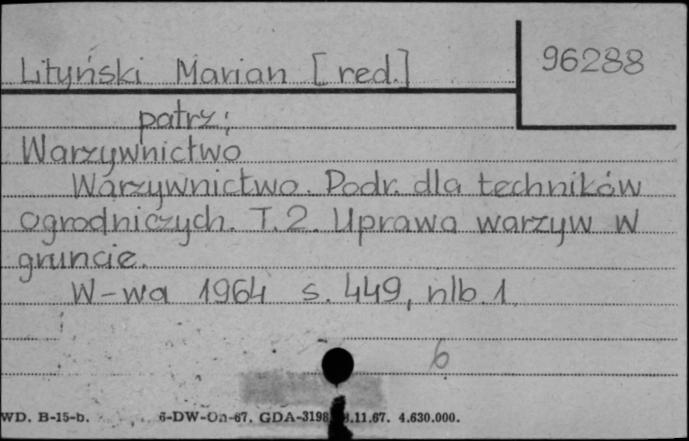 Lityński Marian [red.]
96288
patrz;
Warzywnictwo
Warzywnictwo. Podr. dla techników
ogrodniczych. T. 2. Uprawa warzyw w
gruncie.
W-wa 1964 s. 449, nlb. 1
6
WD. B-15-b. 6-DW-On-67. GDA-3198 .11.67. 4.630.000.